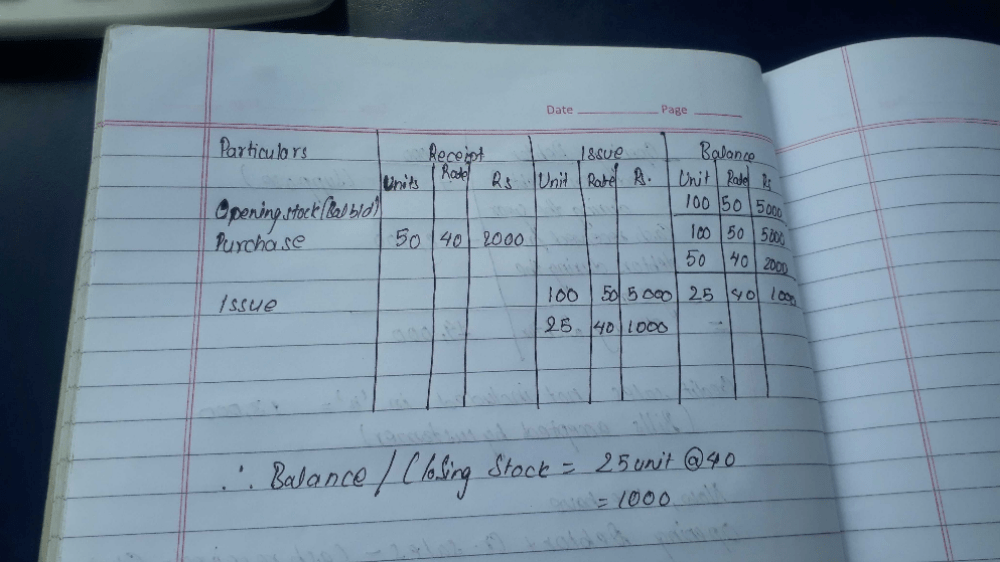 Date Page
Particulars Receipt Issue Balance
Units Rate Rs Unit Rate Rs. Unit Rate Rs
Opening stock (Bal b/d) 100 50 5000
Purchase 50 40 2000 100 50 5000
50 40 2000
Issue 100 50 5000 25 40 1000
25 40 1000
∴ Balance / Closing Stock = 25 unit @ 40
= 1000